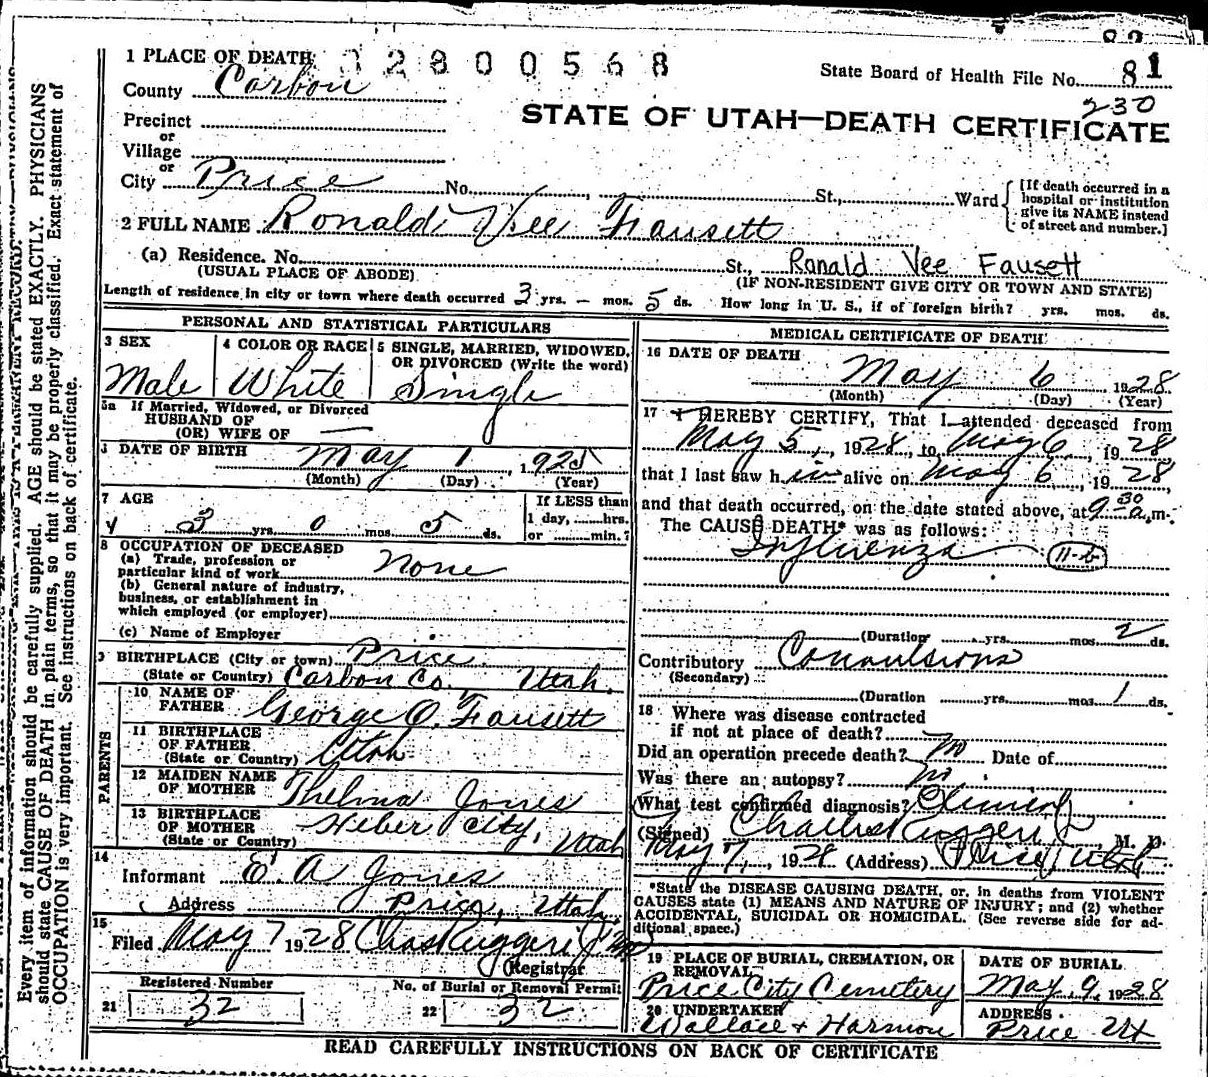 1 PLACE OF DEATH 02800568
State Board of Health File No. 81
230
County Carbon
STATE OF UTAH—DEATH CERTIFICATE
Precinct
or
Village
or
City Price No. St., Ward
[If death occurred in a
hospital or institution
give its NAME instead
of street and number.]
2 FULL NAME Ronald Vee Fausett
(a) Residence. No. St., Ronald Vee Fausett
(USUAL PLACE OF ABODE) (IF NON-RESIDENT GIVE CITY OR TOWN AND STATE)
Length of residence in city or town where death occurred 3 yrs. — mos. 5 ds. How long in U. S., if of foreign birth? yrs. mos. ds.
PERSONAL AND STATISTICAL PARTICULARS
3 SEX
Male
4 COLOR OR RACE
White
5 SINGLE, MARRIED, WIDOWED,
OR DIVORCED (Write the word)
Single
5a If Married, Widowed, or Divorced
HUSBAND OF
(OR) WIFE OF —
DATE OF BIRTH May 1 1925
(Month) (Day) (Year)
7 AGE
3 yrs. 0 mos. 5 ds.
If LESS than
1 day, hrs.
or min.?
8 OCCUPATION OF DECEASED
(a) Trade, profession or
particular kind of work None
(b) General nature of industry,
business, or establishment in
which employed (or employer)
(c) Name of Employer
9 BIRTHPLACE (City or town) Price
(State or Country) Carbon Co. Utah.
PARENTS
10 NAME OF
FATHER George O. Fausett
11 BIRTHPLACE
OF FATHER
(State or Country) Utah
12 MAIDEN NAME
OF MOTHER Thelma Jones
13 BIRTHPLACE
OF MOTHER
(State or Country) Heber City, Utah
14
Informant E. A Jones
Address Price, Utah.
15
Filed May 7 1928 Chas Ruggeri
Registrar
Registered Number
21 32
No. of Burial or Removal Permit
22 32
MEDICAL CERTIFICATE OF DEATH
16 DATE OF DEATH
May 6 1928
(Month) (Day) (Year)
17 I HEREBY CERTIFY, That I attended deceased from
May 5, 1928, to May 6, 1928
that I last saw him alive on May 6, 1928,
and that death occurred, on the date stated above, at 9:30 a.m.
The CAUSE DEATH* was as follows:
Influenza 11-b
(Duration yrs. mos. 2 ds.
Contributory Convulsions
(Secondary)
(Duration yrs. mos. 1 ds.
18 Where was disease contracted
if not at place of death?
Did an operation precede death? no Date of
Was there an autopsy? no
What test confirmed diagnosis? Clinical
(Signed) Charles Ruggeri Jr M. D.
May 7, 1928 (Address) Price, Utah
*State the DISEASE CAUSING DEATH, or, in deaths from VIOLENT
CAUSES state (1) MEANS AND NATURE OF INJURY; and (2) whether
ACCIDENTAL, SUICIDAL OR HOMICIDAL. (See reverse side for ad-
ditional space.)
19 PLACE OF BURIAL, CREMATION, OR
REMOVAL
Price City Cemetery
DATE OF BURIAL
May 9, 1928
20 UNDERTAKER
Wallace & Harmon
ADDRESS
Price Ut
READ CAREFULLY INSTRUCTIONS ON BACK OF CERTIFICATE
Every item of information should be carefully supplied. AGE should be stated EXACTLY. PHYSICIANS
should state CAUSE OF DEATH in plain terms, so that it may be properly classified. Exact statement of
OCCUPATION is very important. See instructions on back of certificate.